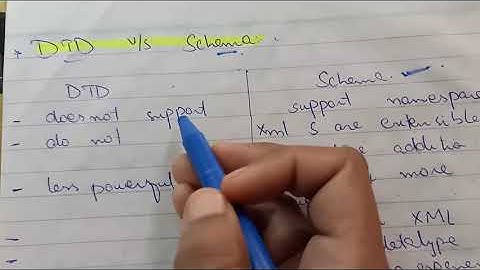 * DTD v/s Schema.
DTD
- does not support
- do not
- less powerful
-
-
Schema.
support namespace
Xml S are extensible
addition
more
XML
datatype